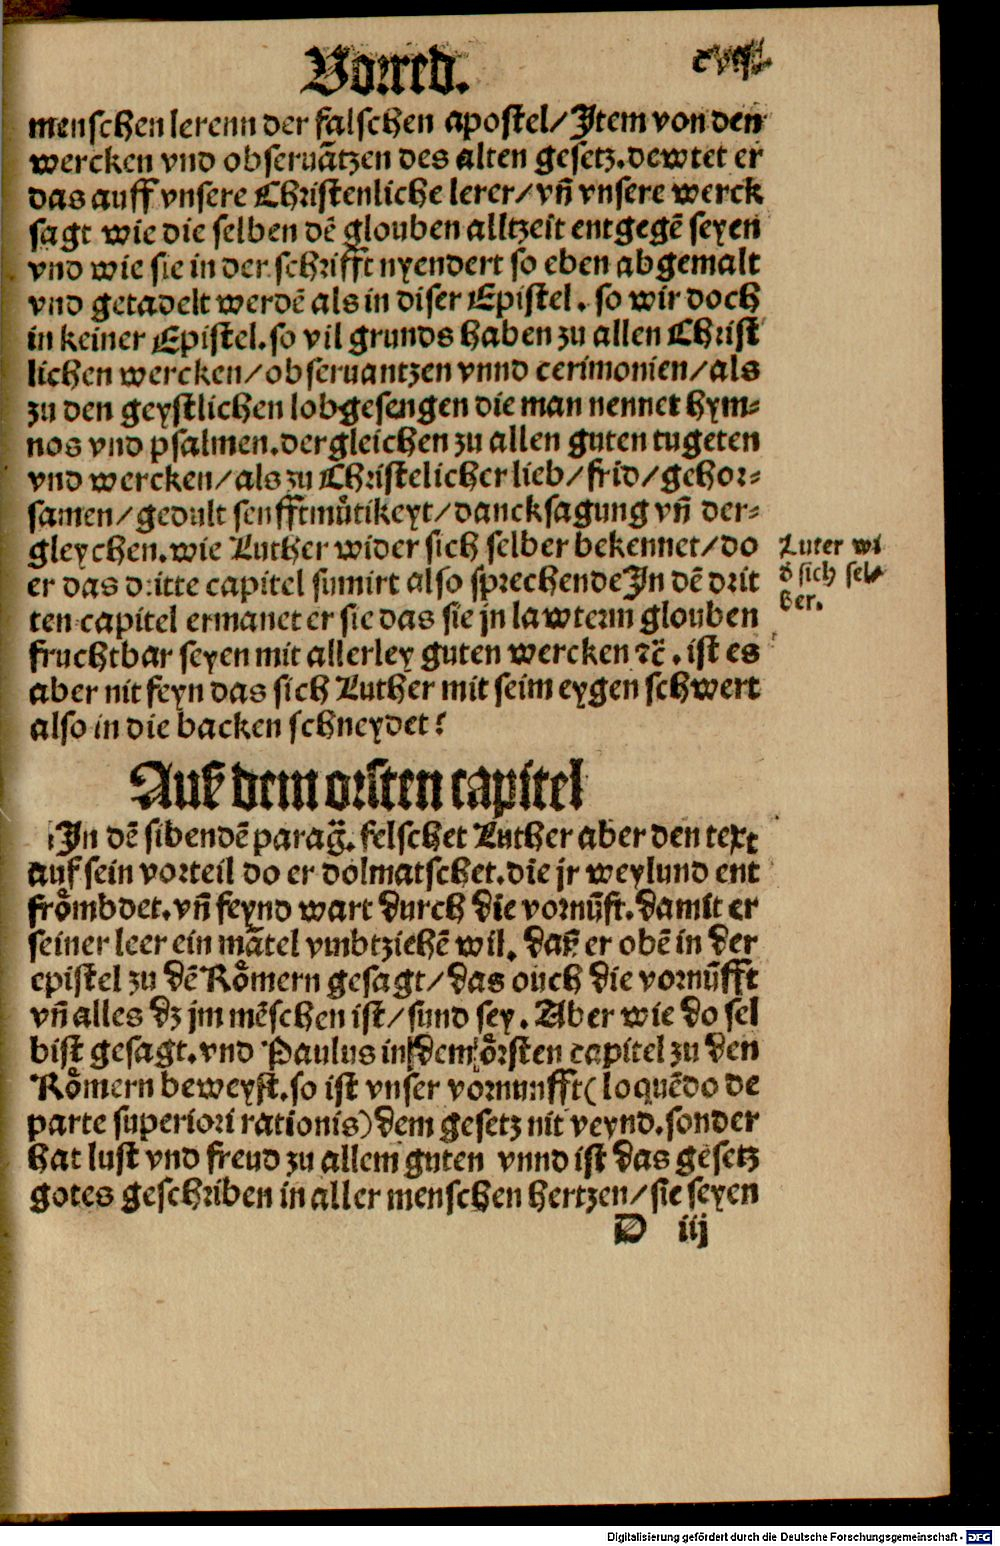 Vorred.
menschen lerenn der falschen apostel/Item von den
wercken vnd obseruãtzen des alten gesetz.dewtet er
das auff vnsere Christenliche lerer/vñ vnsere werck
sagt wie die selben dẽ glouben alltzeit entgegẽ seyen
vnd wie sie in der schrifft nyendert so eben abgemalt
vnd getadelt werdẽ als in diser Epistel. so wir doch
in keiner Epistel.so vil grunds haben zu allen Christ
lichen wercken/obseruantzen vnnd cerimonien/als
zu den geystlichen lobgesengen die man nennet hym⸗
nos vnd psalmen.dergleichen zu allen guten tugeten
vnd wercken/als zu Christelicher lieb/frid/gehor⸗
samen/gedult senfftmuͤtikeyt/dancksagung vñ der⸗
gleychen.wie Luther wider sich selber bekennet/do
er das dritte capitel sumirt also sprechende In dẽ drit
ten capitel ermanet er sie das sie jn lawterm glouben
fruchtbar seyen mit allerley guten wercken ꝛc̃. ist es
aber nit feyn das sich Luther mit seim eygen schwert
also in die backen schneydet?
Luter wi
d̕ sich sel⸗
ber.
Auß dem orsten capitel
In dẽ sibendẽ parag̃. felschet Luther aber den text
auf sein vorteil do er dolmatschet.die jr weylund ent
froͤmbdet.vñ feynd wart durch die vornũft.damit er
seiner leer ein mãtel vmbtziehẽ wil. daß er obẽ in der
epistel zu dẽ Roͤmern gesagt/das ouch die vornũfft
vñ alles dz jm mẽschen ist/sund sey. Aber wie do sel
bist gesagt.vnd Paulus in dem oͤrsten capitel zu den
Roͤmern beweyst.so ist vnser vornunfft(loquẽdo de
parte superiori rationis)dem gesetz nit veynd.sonder
hat lust vnd freud zu allem guten vnnd ist das gesetz
gotes geschriben in aller menschen hertzen/sie seyen
D iij
Digitalisierung gefördert durch die Deutsche Forschungsgemeinschaft - DFG